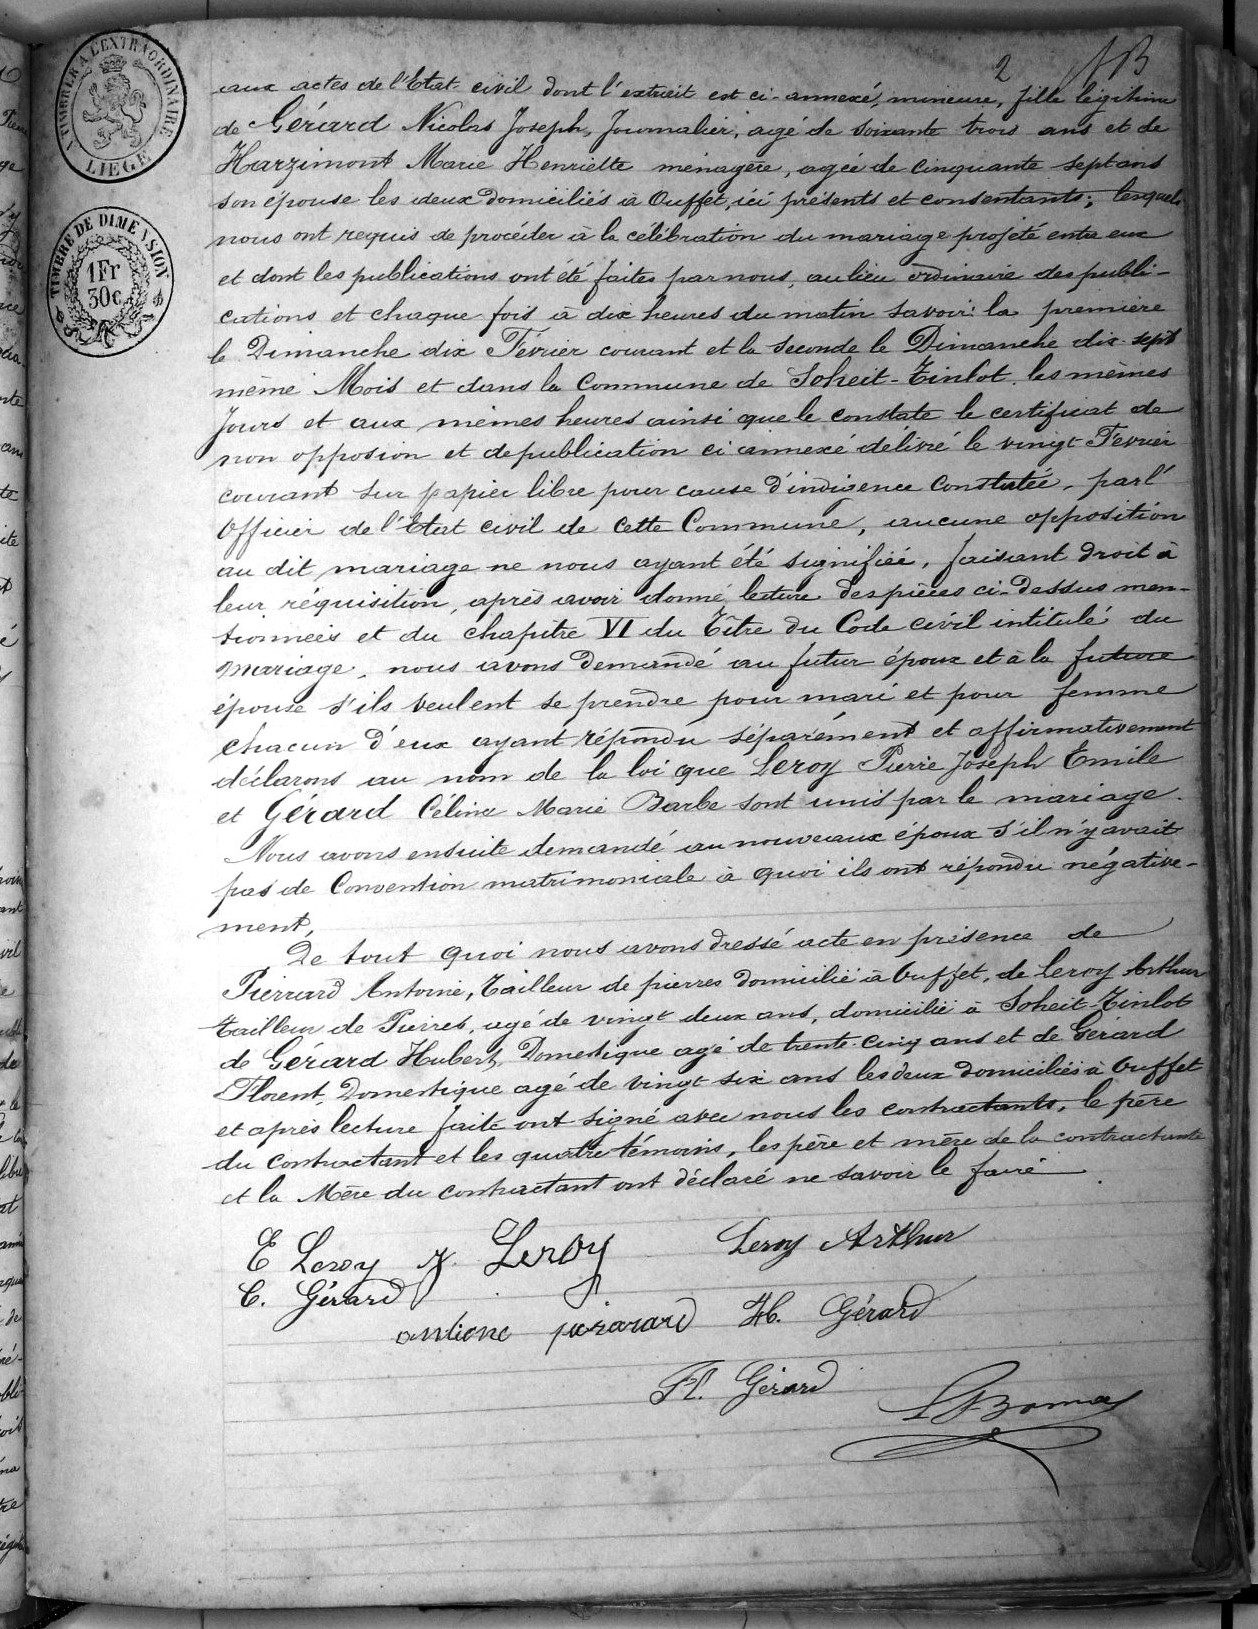 2
A TIMBRER A L'EXTRAORDINAIRE
LIEGE
TIMBRE DE DIMENSION
1Fr
30c
aux actes de l'Etat civil dont l'extrait est ci-annexé, mineure, fille légitime
de Gérard Nicolas Joseph, Journalier, agé de soixante trois ans et de
Harzimont Marie Henriette ménagère, agée de cinquante sept ans
son épouse les deux domiciliés à Ouffet, ici présents et consentants; lesquels
nous ont requis de procéder à la célébration du mariage projeté entre eux
et dont les publications ont été faites par nous, au lieu ordinaire des publi-
cations et chaque fois à dix heures du matin savoir: la première
le Dimanche dix Février courant et la seconde le Dimanche dix-sept
même Mois et dans la Commune de Soheit-Tinlot les mêmes
Jours et aux mêmes heures ainsi que le constate le certificat de
non opposion et de publication ci annexé délivré le vingt Février
courant sur papier libre pour cause d'indigence constatée, par l'
Officier de l'Etat civil de cette Commune, aucune opposition
au dit mariage ne nous ayant été signifiée, faisant droit à
leur réquisition, après avoir donné lecture des pièces ci-dessus men-
tionnées et du chapitre VI du Titre du Code civil intitulé du
mariage, nous avons demandé au futur époux et à la future
épouse s'ils veulent se prendre pour mari et pour femme
chacun d'eux ayant répondu séparément et affirmativement
déclarons au nom de la loi que Leroy Pierre Joseph Emile
et Gérard Céline Marie Barbe sont unis par le mariage.
Nous avons ensuite demandé au nouveaux époux s'il n'y avait
pas de Convention matrimoniale à quoi ils ont répondu négative-
ment,
De tout quoi nous avons dressé acte en présence de
Pierrard Antoine, Tailleur de pierres domicilié à Ouffet, de Leroy Arthur
Tailleur de Pierres, agé de vingt deux ans, domicilié à Soheit-Tinlot
de Gérard Hubert, Domestique agé de trente-cinq ans et de Gerard
Florent, Domestique agé de vingt six ans les deux domiciliés à Ouffet
et après lecture faite ont signé avec nous les contractants, le père
du contractant et les quatre témoins, les père et mère de la contractante
et la Mère du contractant ont déclaré ne savoir le faire
E Leroy J. Leroy Leroy Arthur
C. Gérard
antione pierarard H. Gérard
Fl. Gérard